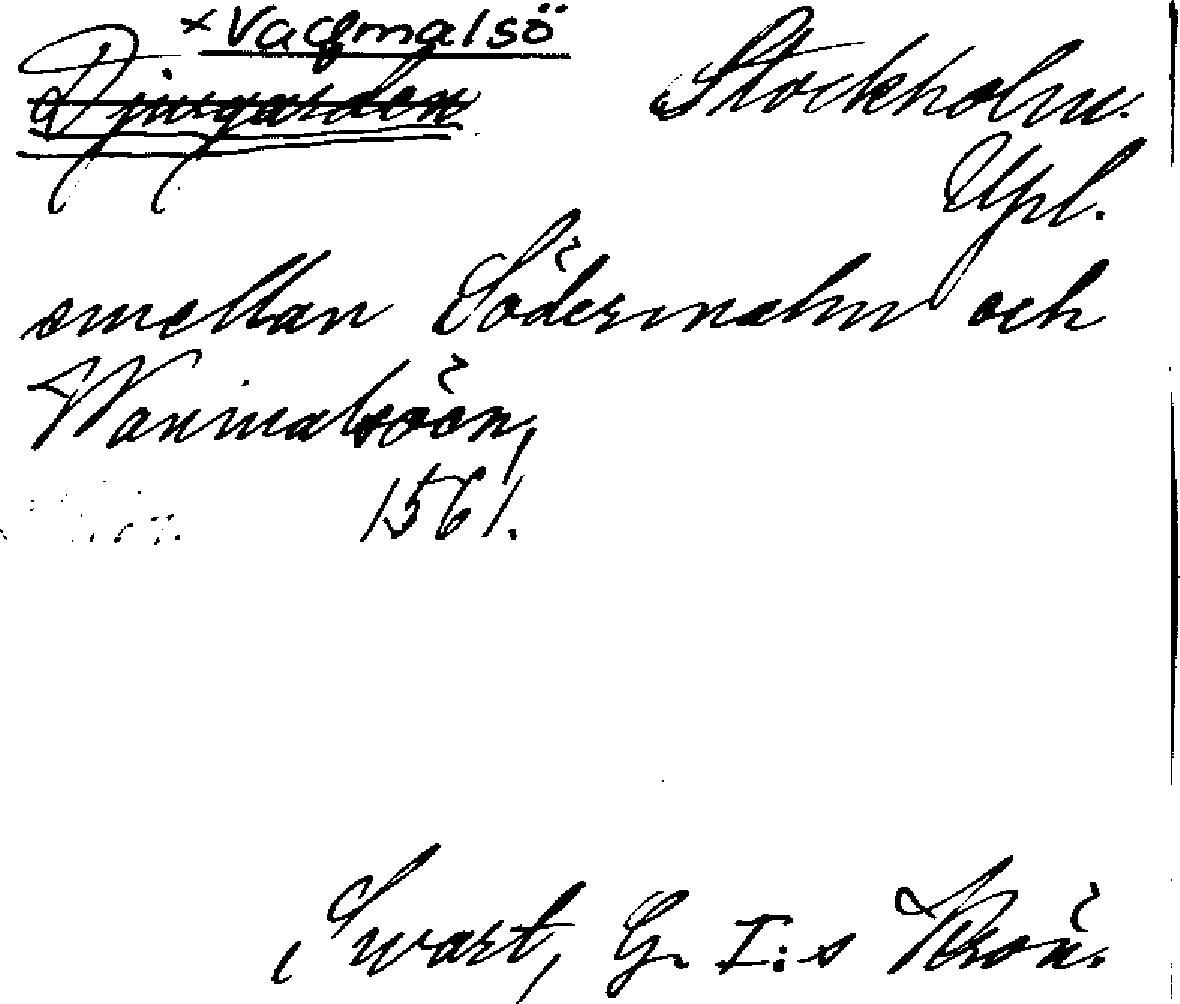 ×Vadmalsö
Djurgården Stockholm.
Upl.
emellan Södermalm och
Wanmalsöön,
1561.
Swart, G. I:s Krön.